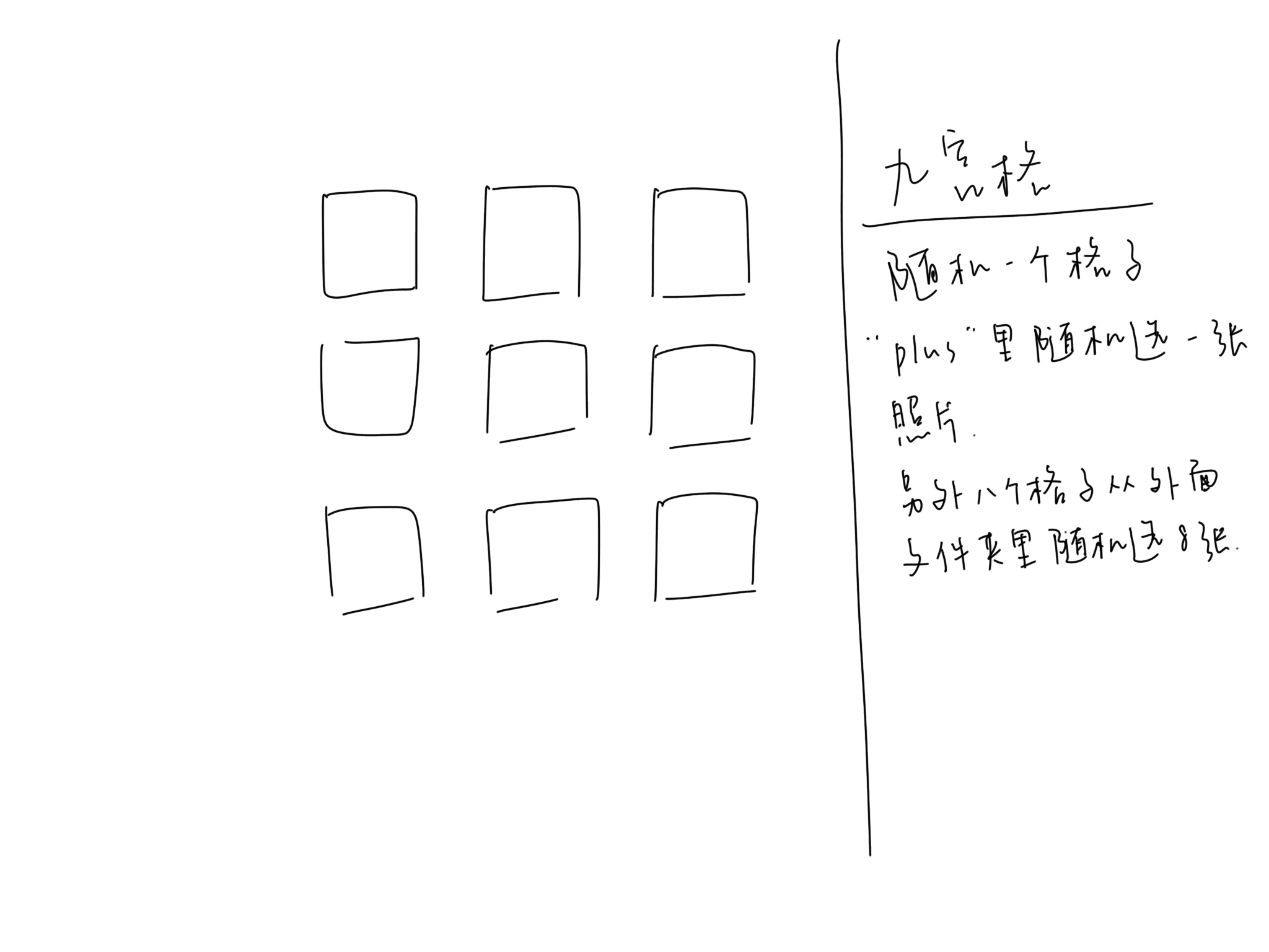 九宫格
随机一个格子
"plus"里随机选一张
照片.
另外八个格子从外面
文件夹里随机选8张.